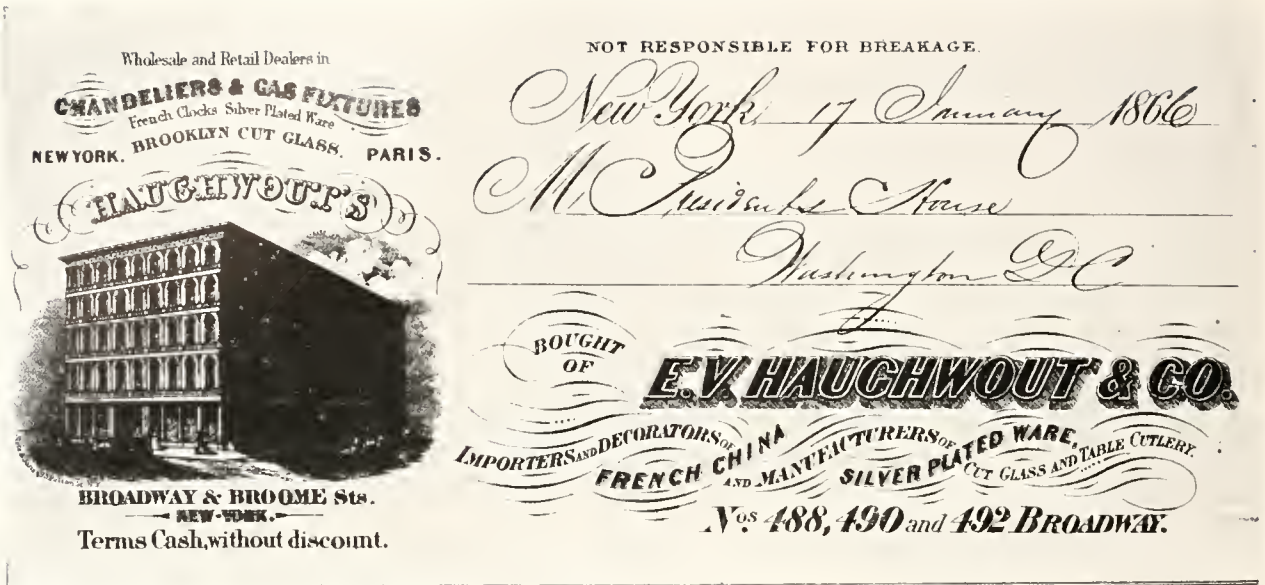 Wholesale and Retail Dealers in
CHANDELIERS & GAS FIXTURES
French Clocks Silver Plated Ware
BROOKLYN CUT GLASS.
NEW YORK. PARIS.
HAUGHWOUT'S
BROADWAY & BROOME Sts.
NEW-YORK.
Terms Cash, without discount.
NOT RESPONSIBLE FOR BREAKAGE.
New York, 17 January 1866
M Presidents House
Washington D C
BOUGHT
OF
E.V. HAUGHWOUT & CO.
IMPORTERS AND DECORATORS OF FRENCH CHINA AND MANUFACTURERS OF SILVER PLATED WARE, CUT GLASS AND TABLE CUTLERY.
Nos. 488, 490 and 492 BROADWAY.